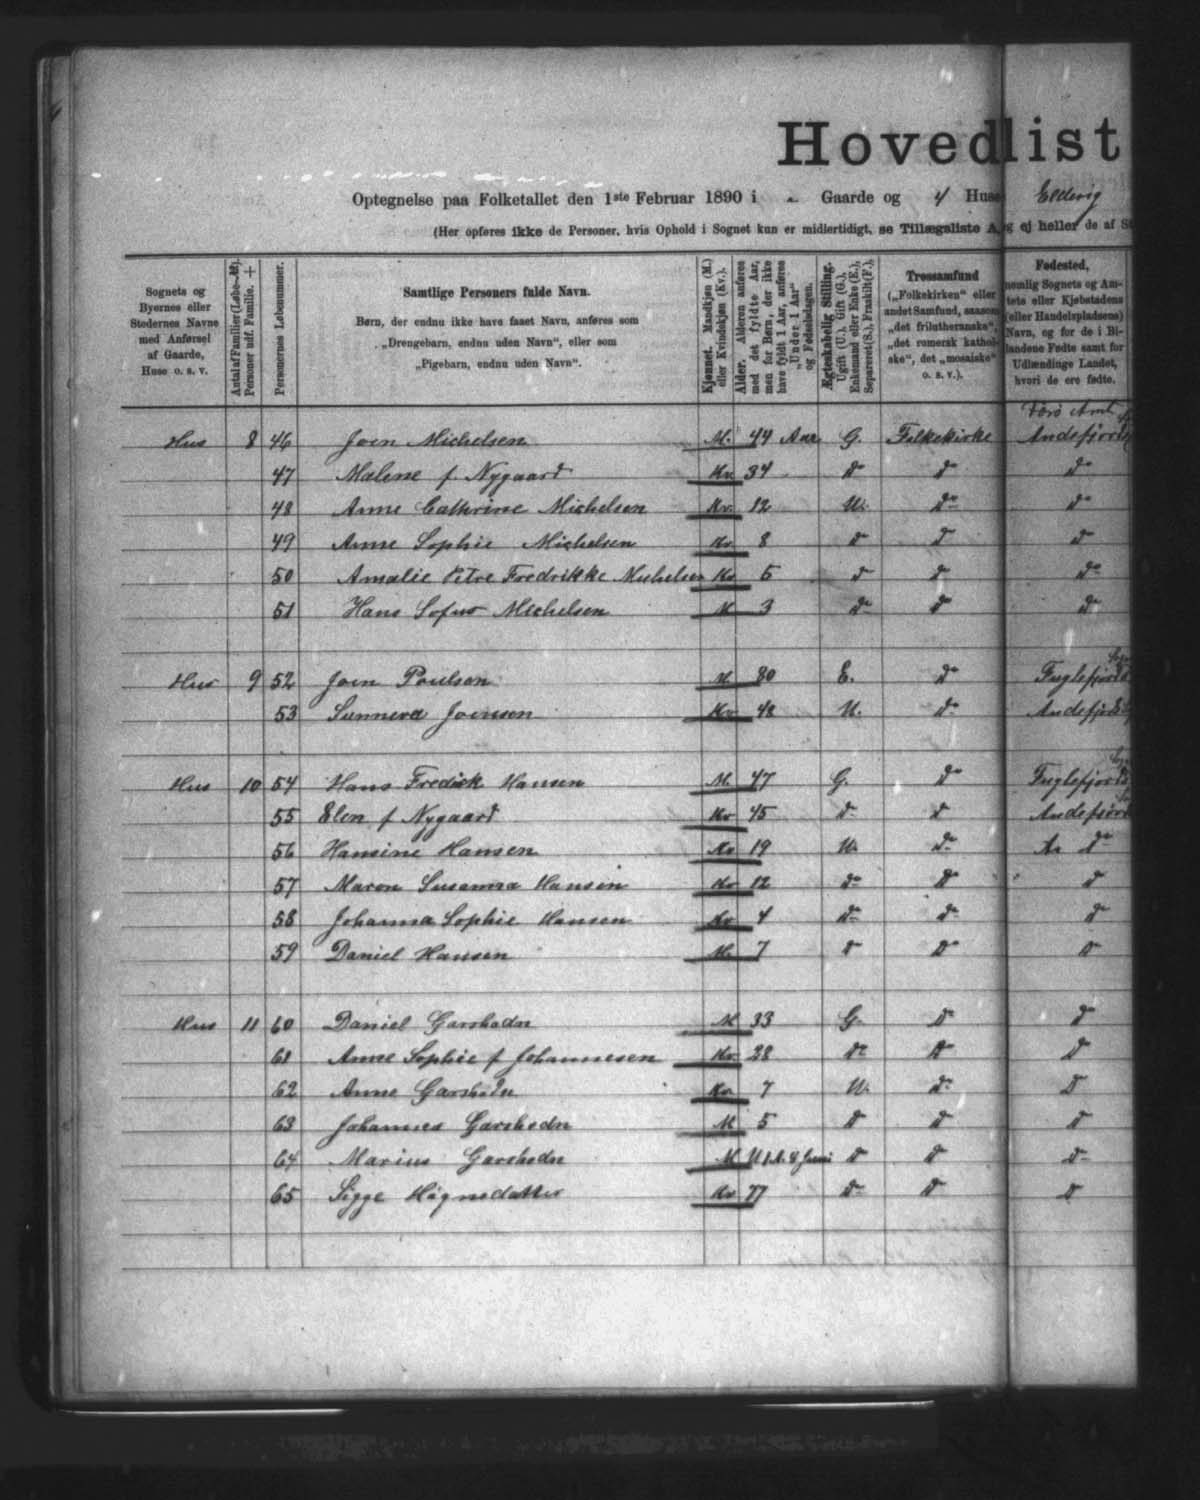 Hovedlist
Optegnelse paa Folketallet den 1ste Februar 1890 i - Gaarde og 4 Huse Eldevig
(Her opføres ikke de Personer, hvis Ophold i Sognet kun er midlertidigt, se Tillægsliste A, og ej heller de af S
Sognets og Byernes eller Stedernes Navne med Anførsel af Gaarde, Huse o. s. v.
Antal af Familier (Løbe-№). Personer udf. Familie. +
Personernes Løbenummer.
Samtlige Personers fulde Navn.
Børn, der endnu ikke have faaet Navn, anføres som
„Drengebarn, endnu uden Navn“, eller som
„Pigebarn, endnu uden Navn“.
Kjønnet. Mandkjøn (M.) eller Kvindekjøn (Kv.).
Alder. Alderen anføres med det fyldte Aar, men for Børn, der ikke have fyldt 1 Aar, anføres „Under 1 Aar“ og Fødselsdagen.
Ægteskabelig Stilling. Ugift (U.), Gift (G.), Enkemand eller Enke (E.), Separeret (S.), Fraskilt (F.).
Trossamfund („Folkekirken“ eller andet Samfund, saasom „det frilutheranske“, „det romersk kathol-ske“, det „mosaiske“ o. s. v.).
Fødested, nemlig Sognets og Am-tets eller Kjøbstadens (eller Handelspladsens) Navn, og for de i Bi-landene Fødte samt for Udlændinge Landet, hvori de ere fødte.
Færø Amt
Hus 8 46 Joen Michelsen M. 44 Aar G. Folkekirke Andefjord
47 Malene f Nygaard Kv 34 Do Do Do
48 Anne Cathrine Michelsen Kv. 12 U. Do Do
49 Anne Sophie Michelsen Kv 8 Do Do Do
50 Amalie Petre Fredrikke Michelsen Kv 5 Do Do Do
51 Hans Sofus Michelsen M 3 Do Do Do
Hus 9 52 Joen Poulsen M 80 E. Do Fuglefjord
53 Sunneva Joensen Kv 48 U. Do Andefjord
Hus 10 54 Hans Fredrik Hansen M. 47 G. Do Fuglefjord
55 Elen f Nygaard Kv 45 Do Do Andefjord
56 Hansine Hansen Kv 19 U. Do Do
57 Maren Susanna Hansen Kv 12 Do Do Do
58 Johanna Sophie Hansen Kv 4 Do Do Do
59 Daniel Hansen M. 7 Do Do Do
Hus 11 60 Daniel Garshodn M 33 G. Do Do
61 Anne Sophie f Johannesen Kv 38 Do Do Do
62 Anne Garshodn Kv 7 U. Do Do
63 Johannes Garshodn M 5 Do Do Do
64 Marius Garshodn M U 1 A. 8 Juni Do Do Do
65 Sigge Høgnedatter Kv 77 Do Do Do